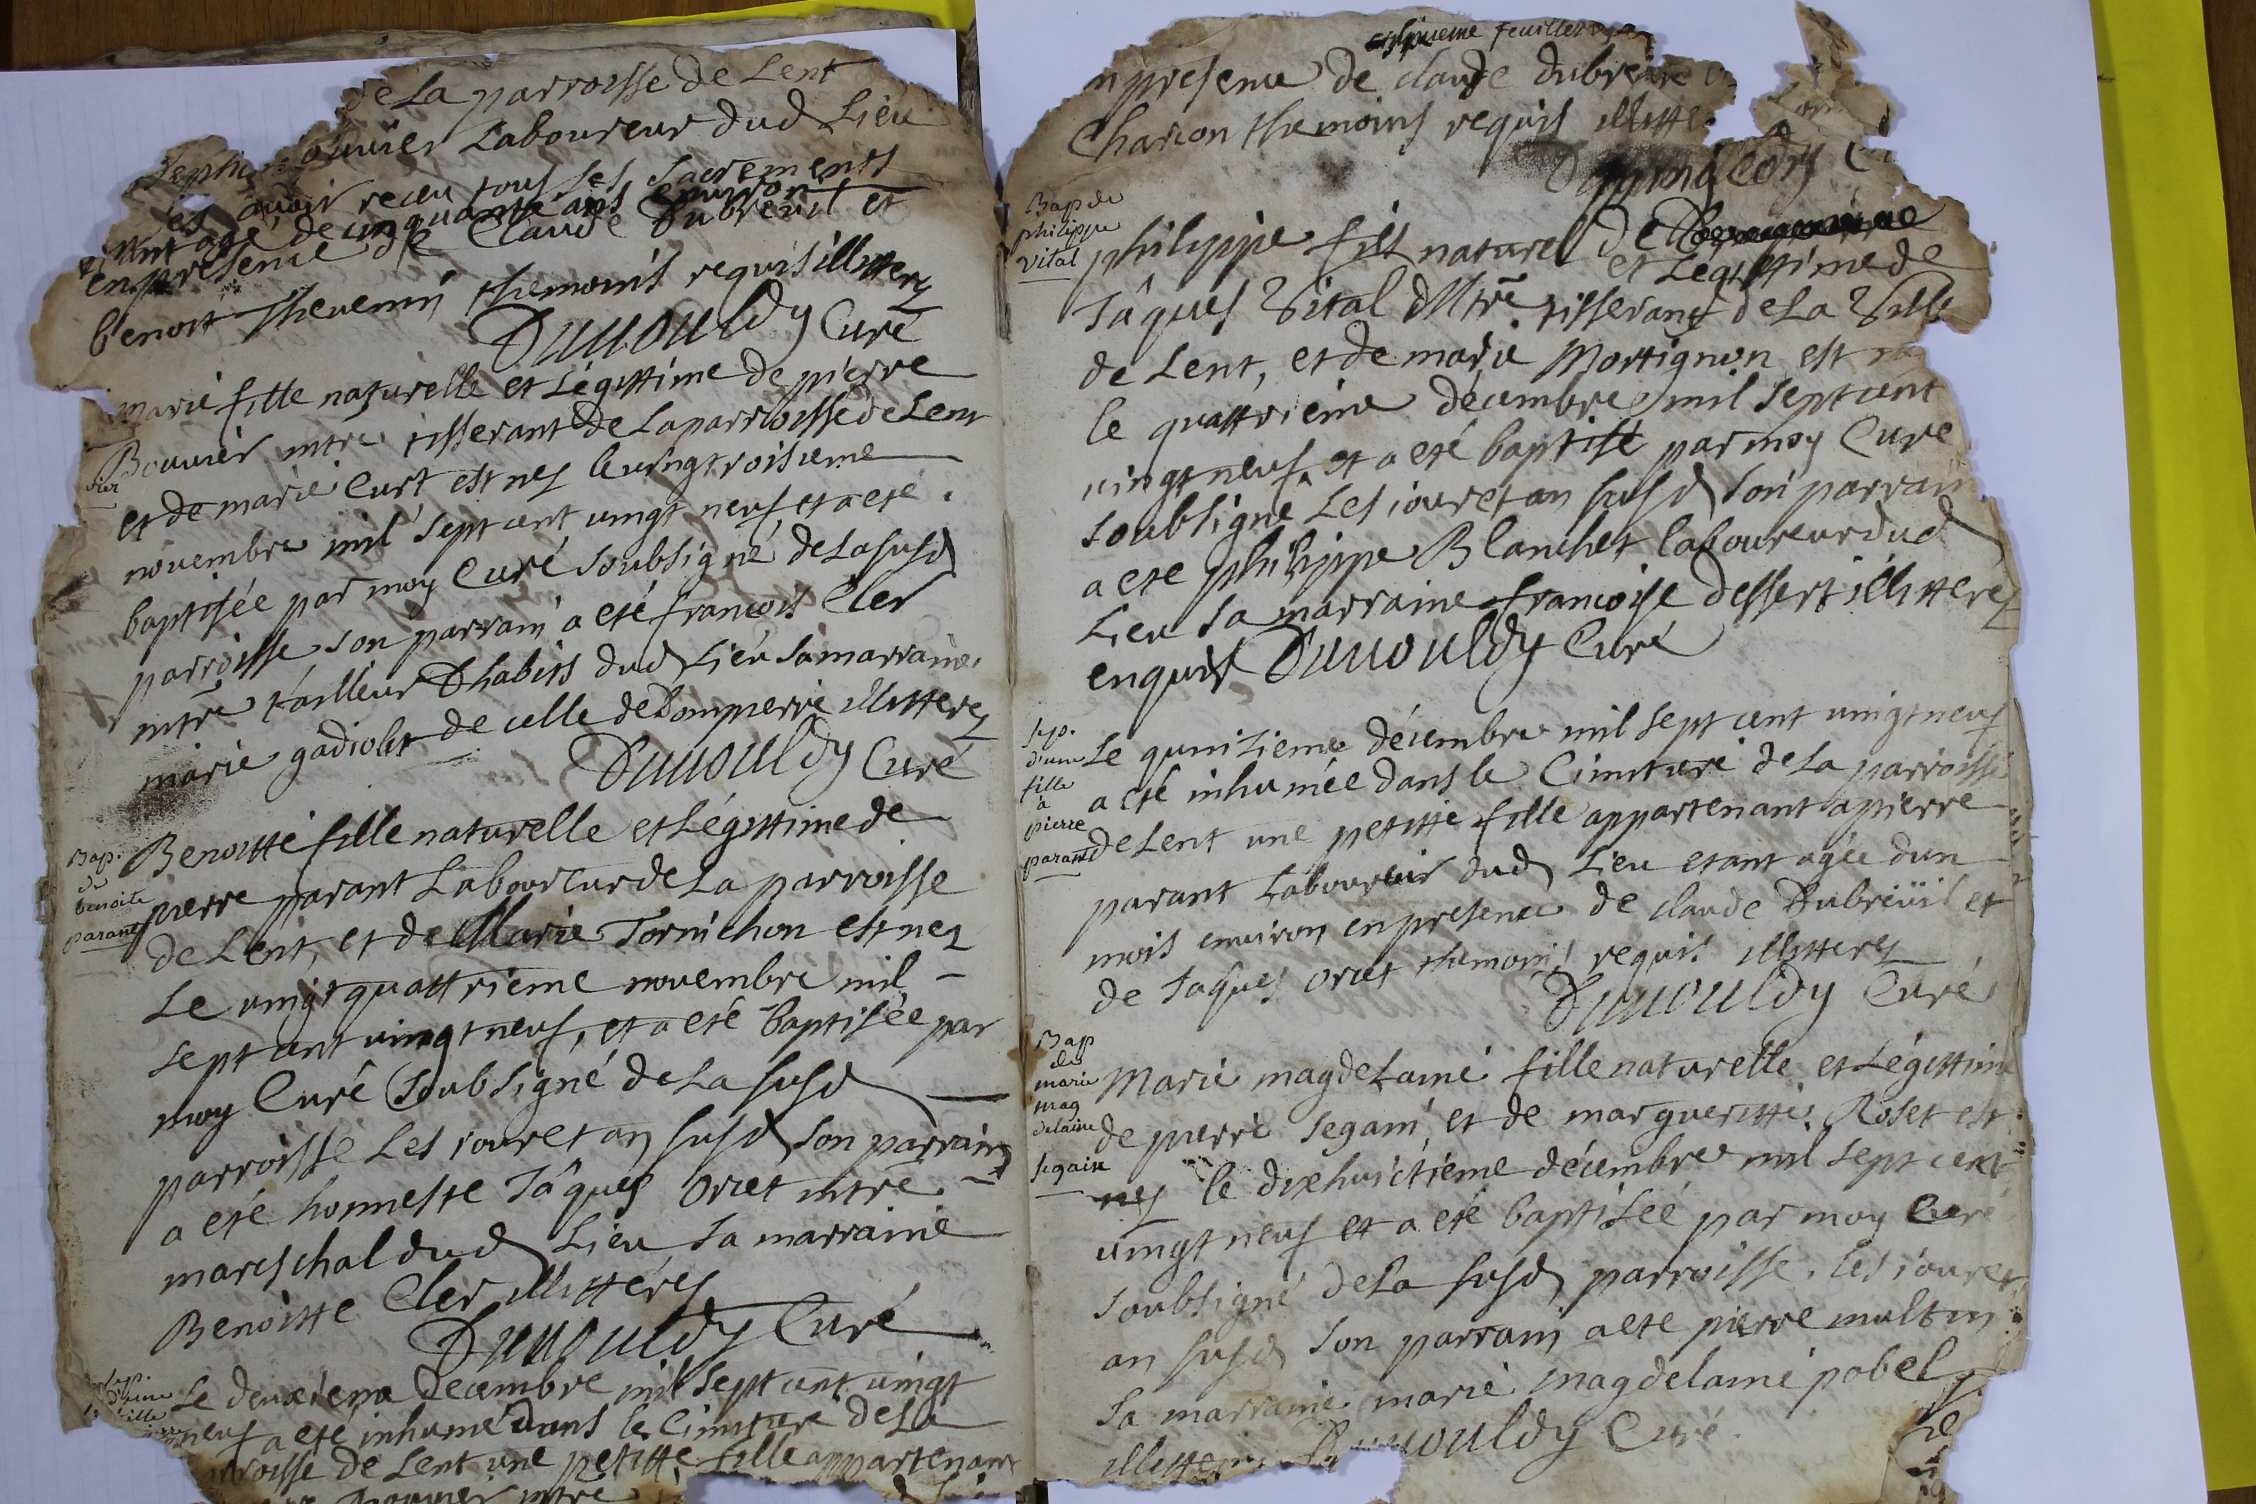 de La parroisse de Lent
ouuier Laboureur dud Lieu
auoir receu tous ses sacrements
etant agé de cinquante ans enuiron
en presence de Claude Dubreüil et
benoit Theuenin themoins requis illitterez
Curé
marie fille naturelle et Légittime de pierre
Bouuier mtre tisserant de La parroisse de Lent
et de marie Curt est nes le uingt troisieme
novembre mil sept cent uingt neuf et a eté
baptisée par moy Curé soubsigné de La susd
parroisse son parrain a eté francois Cler
mtre tailleur Dhabits dud Lieu Sa marraine
marie gadiolet de celle de Dompierre illitterez
Curé
Bap.
de
benoite
parant
Benoitte fille naturelle et Légittime de
pierre parant Laboureur de La parroisse
de Lent, et de Marie Tornichon est nez
Le uingt quattrieme novembre mil
sept cent uingt neuf, et a eté baptisée par
moy Curé soubsigné de La susd
parroisse Les iour et an susd son parrain
a eté honneste Jâques Oriet mtre
mareschal dud Lieu Sa marraine
Benoitte Cler illitterés
Curé
Le deuxieme Decembre mil sept cent uingt
neuf a eté inhumé dans le Cimitiere de La
parroisse de Lent une petitte fille appartenant
mtre
feuillet
en presence de claude dubreüil
Charion themoins requis illitterez
Bap de
philippe
vital
philippe fils naturel de
et Légittime de
Jâques Vital Mtre tisserant de La Ville
de Lent, et de marie Mortignon est
le quattrieme décembre mil sept cent
uingt neuf et a eté baptisé par moy Curé
soubsigné Les iour et an susd son parrain
a eté philippe Blanchet laboureur dud
Lieu sa marraine francoise dessert illitterez
enquis Curé
sep.
d'une
fille
a
pierre
parant
Le quinzieme décembre mil sept cent uingt neuf
a eté inhumée dans le Cimitiere de La parroisse
de Lent une petitte fille appartenant a pierre
parant Laboureur dud Lieu etant agée dun
mois enuiron en presence de claude Dubreüil et
de Jaques Oriet themoins requis illitterez
Curé
Bap
de
marie
mag
delaine
segain
Marie magdelaine fille naturelle et Légittime
de pierre segain et de margueritte Roset est
nes le dixhuictieme décembre mil sept cent
uingt neuf et a eté baptisée par moy Curé
soubsigné de La susd parroisse, les iour et
an susd son parrain a eté pierre multin
sa marraine marie magdelaine pobel
Curé